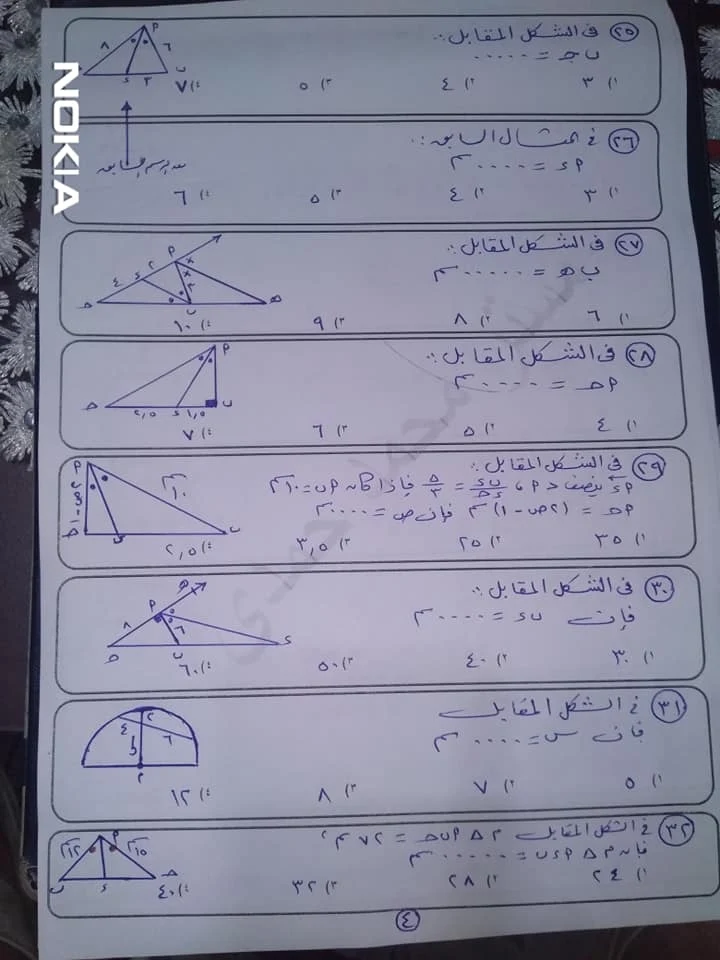 ٢٥ فى الشكل المقابل :.
ب جـ = .....
١) ٣ ٢) ٤ ٣) ٥ ٤) ٧
P ٨ ٦ ٣ ء ب
NOKIA
٢٦ فى المثال السابق :.
P ء = ..... سم
١) ٣ ٢) ٤ ٣) ٥ ٤) ٦
٢٧ فى الشكل المقابل :.
ب هـ = ..... سم
١) ٦ ٢) ٨ ٣) ٩ ٤) ١٠
P x x ٢ ء ٤ ٣ حـ ب هـ
٢٨ فى الشكل المقابل :.
P حـ = ..... سم
١) ٤ ٢) ٥ ٣) ٦ ٤) ٧
P حـ ٢,٥ ء ١,٥ ب
٢٩ فى الشكل المقابل :.
P ء ينصف > P ، ب ء / ء حـ = ٥ / ٣ فإذا كان P ب = ١٠ سم
P حـ = (٢ ص - ١) سم فإن ص = .....
١) ٣٥ ٢) ٢٥ ٣) ٣,٥ ٤) ٢,٥
P ١٠ سم ٢ ص - ١ حـ ء ب
٣٠ فى الشكل المقابل :.
فإن ب ء = ..... سم
١) ٣٠ ٢) ٤٠ ٣) ٥٠ ٤) ٦٠
P ٨ ٦ حـ ب ء
٣١ فى الشكل المقابل
فإن س = ..... سم
١) ٥ ٢) ٧ ٣) ٨ ٤) ١٢
٢ ٤ ٦ س م
٣٢ فى الشكل المقابل م Δ P ب حـ = ٧٢ سم٢
فإن م Δ P ء ب = ..... سم
١) ٢٤ ٢) ٢٨ ٣) ٣٢ ٤) ٤٠
P ١٢ سم ١٥ سم ب ء حـ
٤